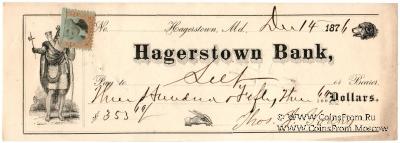 No. Hagerstown, Md., Dec 14 1876
Hagerstown Bank,
Pay to Self or Bearer.
Three Hundred & Fifty Three 60/100 Dollars.
$ 353 60/
Thos.
www.CoinsFrom.Ru
CoinsFrom.Moscow